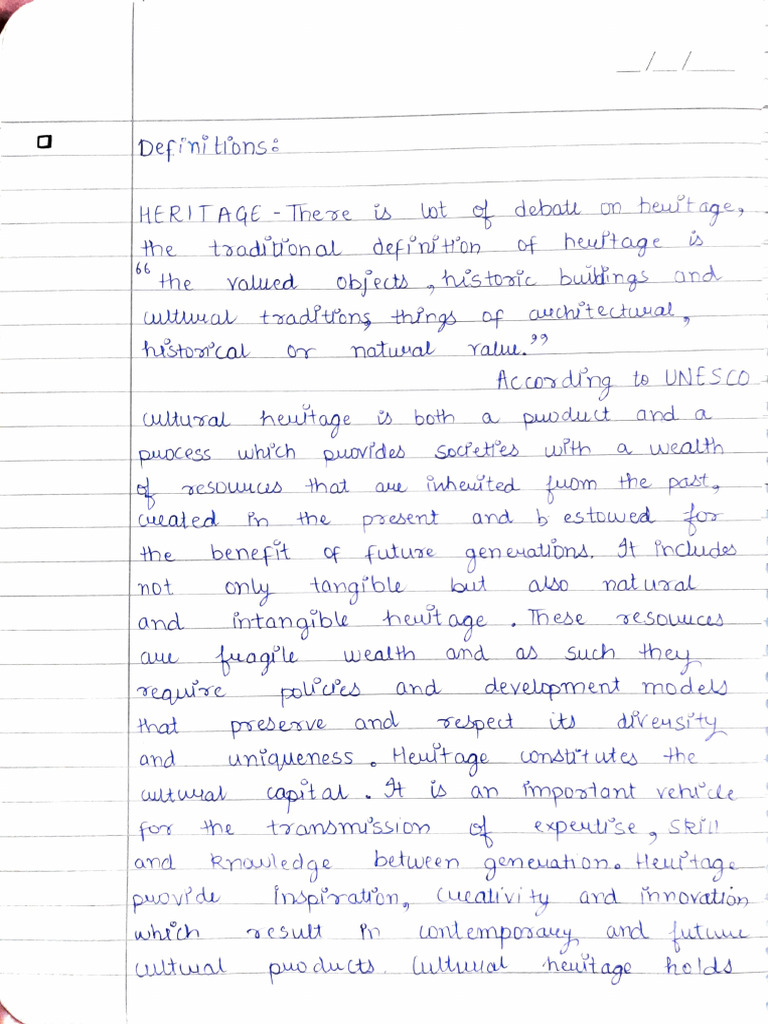 __/__/____
Definitions:
HERITAGE - There is lot of debate on heritage,
the traditional definition of heritage is
"the valued objects, historic buildings and
cultural traditions, things of architectural,
historical or natural value."
According to UNESCO
cultural heritage is both a product and a
process which provides societies with a wealth
of resources that are inherited from the past,
created in the present and bestowed for
the benefit of future generations. It includes
not only tangible but also natural
and intangible heritage. These resources
are fragile wealth and as such they
require policies and development models
that preserve and respect its diversity
and uniqueness. Heritage constitutes the
cultural capital. It is an important vehicle
for the transmission of expertise, skill
and knowledge between generation. Heritage
provide inspiration, creativity and innovation
which result in contemporary and future
cultural products. Cultural heritage holds